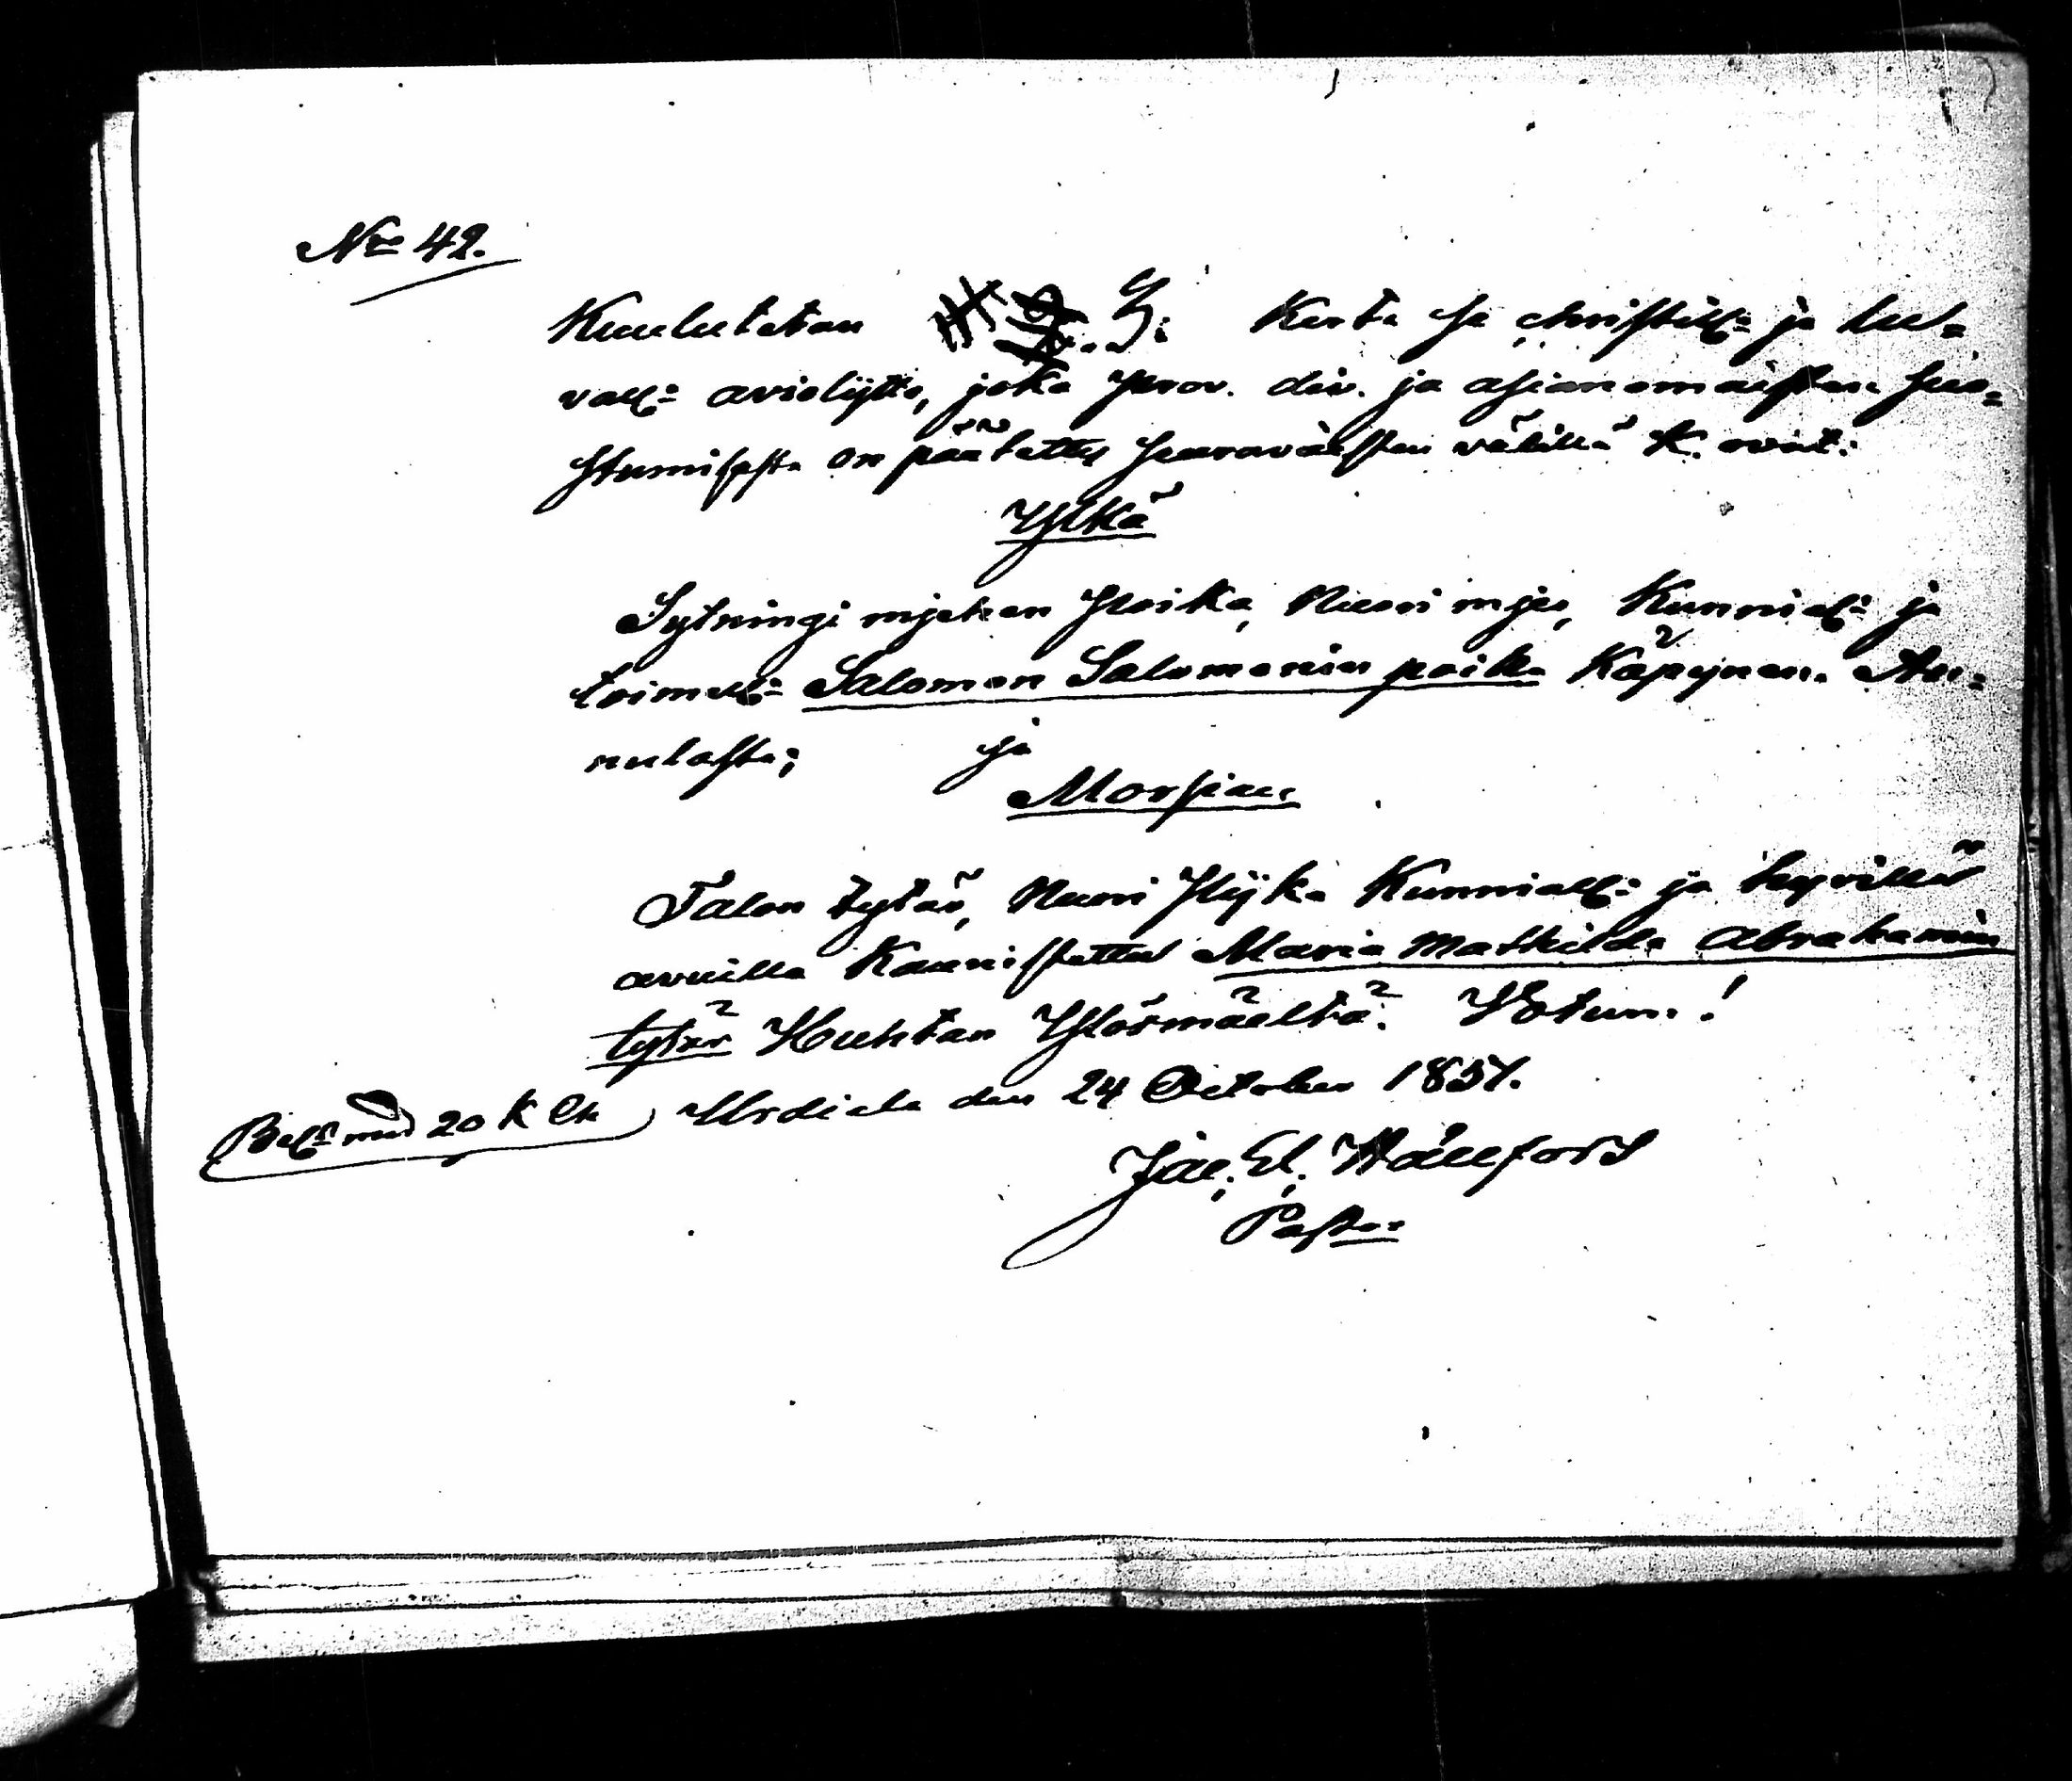 No 42.
Kuulutetan 3: Kerta se christill: ja lu-
vall: avioljtto, joka prov. div. ja asianomaisten suo-
stumisesta on päätetty seuravaisten välillä K. ovat:
Ylkä
Sytningi mjehen poika, Nuori mjes, Kunniall: ja
toimell: Salomon Salomonin poika Käpynen An-
nulasta; ja
Morsian
Talon tytär, Nuori Pijka Kunniall: ja hyvillä
avuilla Kaunistettu Maria Mathilda Abrahamin
tytär Huhtan Ylösmäeltä. Votum!
Bel: med 20 K Urdiala den 24 October 1857.
Jac. El. Hällfors
Pastor